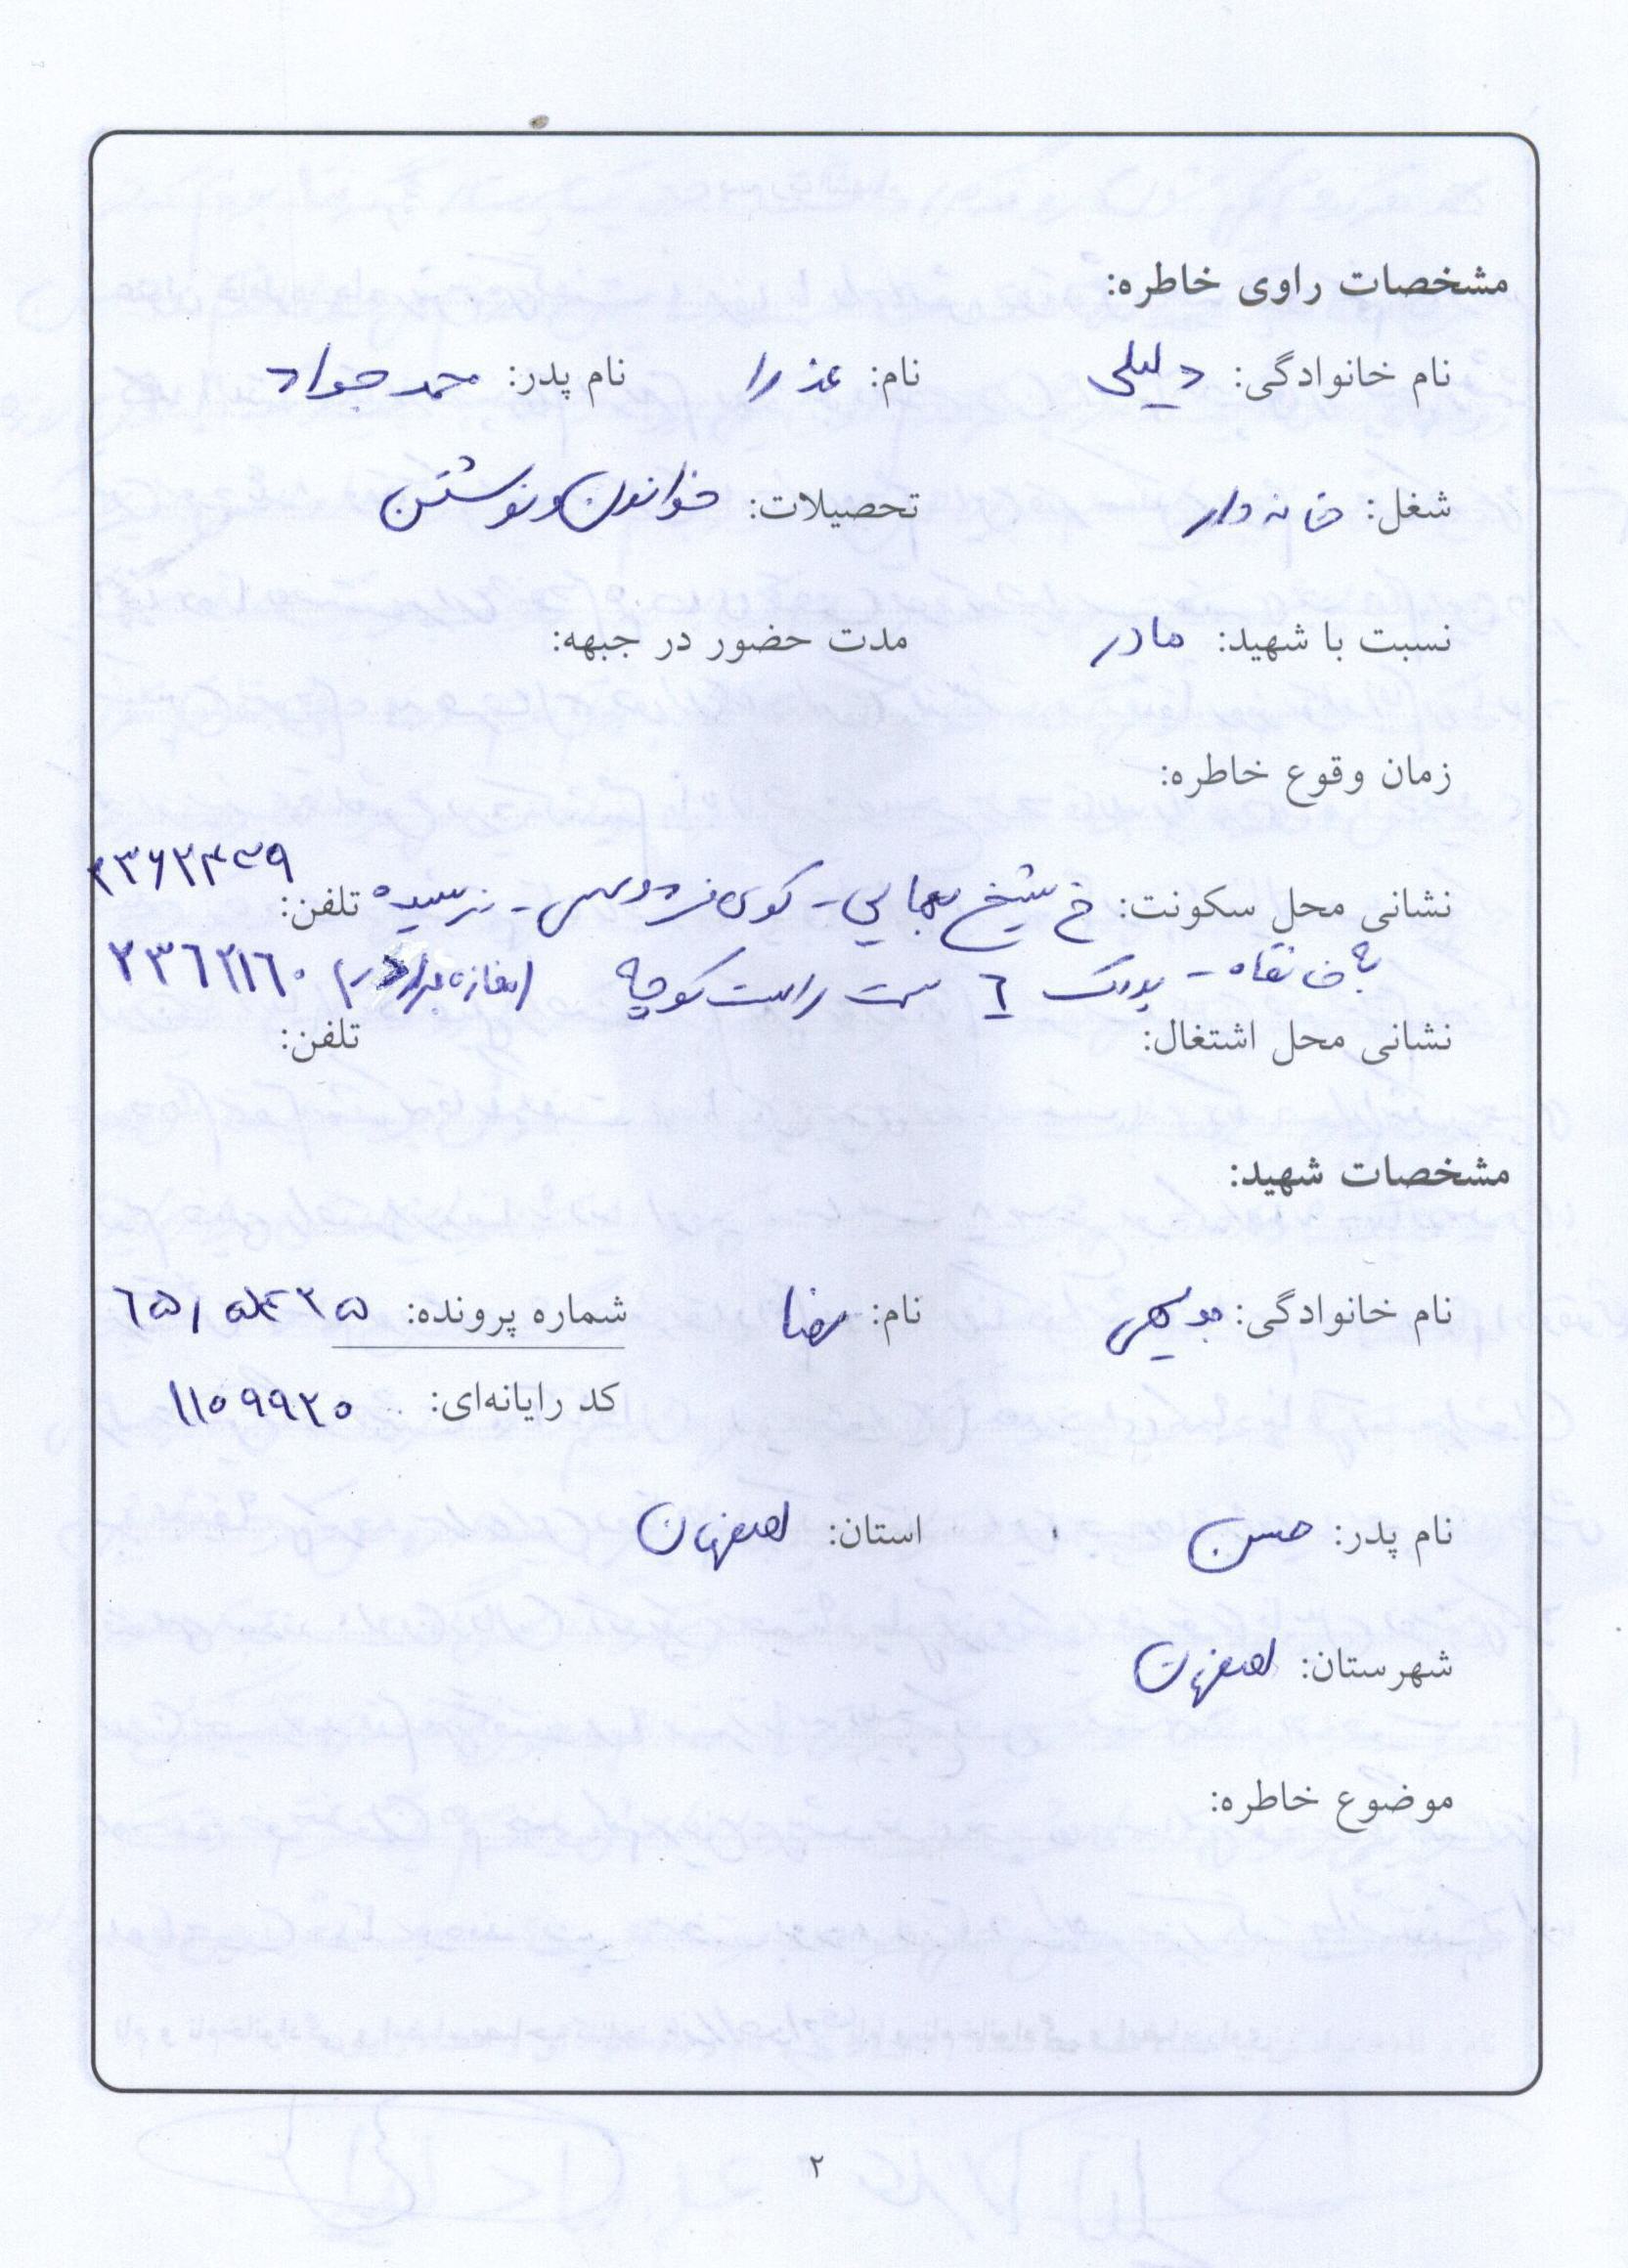 مشخصات راوی خاطره:
نام خانوادگی: دلیلی نام: عذرا نام پدر: محمد جواد
شغل: خانه دار تحصیلات: خواندن و نوشتن
نسبت با شهید: مادر مدت حضور در جبهه:
زمان وقوع خاطره:
نشانی محل سکونت: خ شیخ بهایی - کوی فردوسی - نرسیده تلفن:
به خانقاه - پلاک ٦ سمت راست کوچه (مغازه برادر) ٢٣٦٢١٦٠
نشانی محل اشتغال: تلفن:
مشخصات شهید:
نام خانوادگی: نام: رضا شماره پرونده:
کد رایانه‌ای: ١١٥٩٩٢٥
نام پدر: حسن استان: اصفهان
شهرستان: اصفهان
موضوع خاطره:
٢